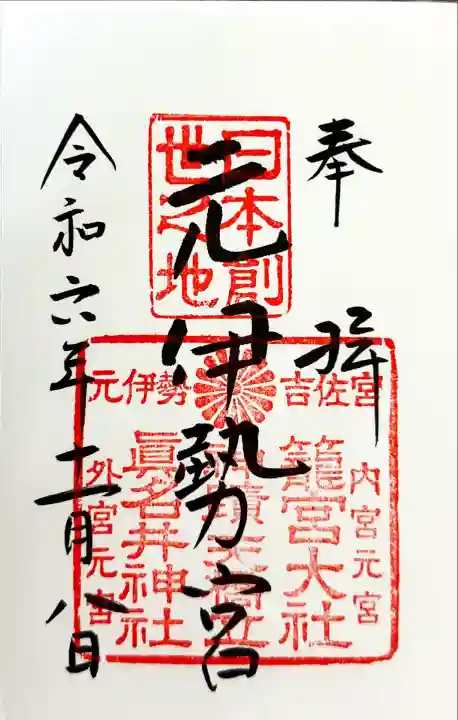 奉拝
日本創
世之地
元伊勢宮
元伊勢 吉佐宮
内宮元宮
籠宮大社
眞名井神社
外宮元宮
令和六年十二月八日